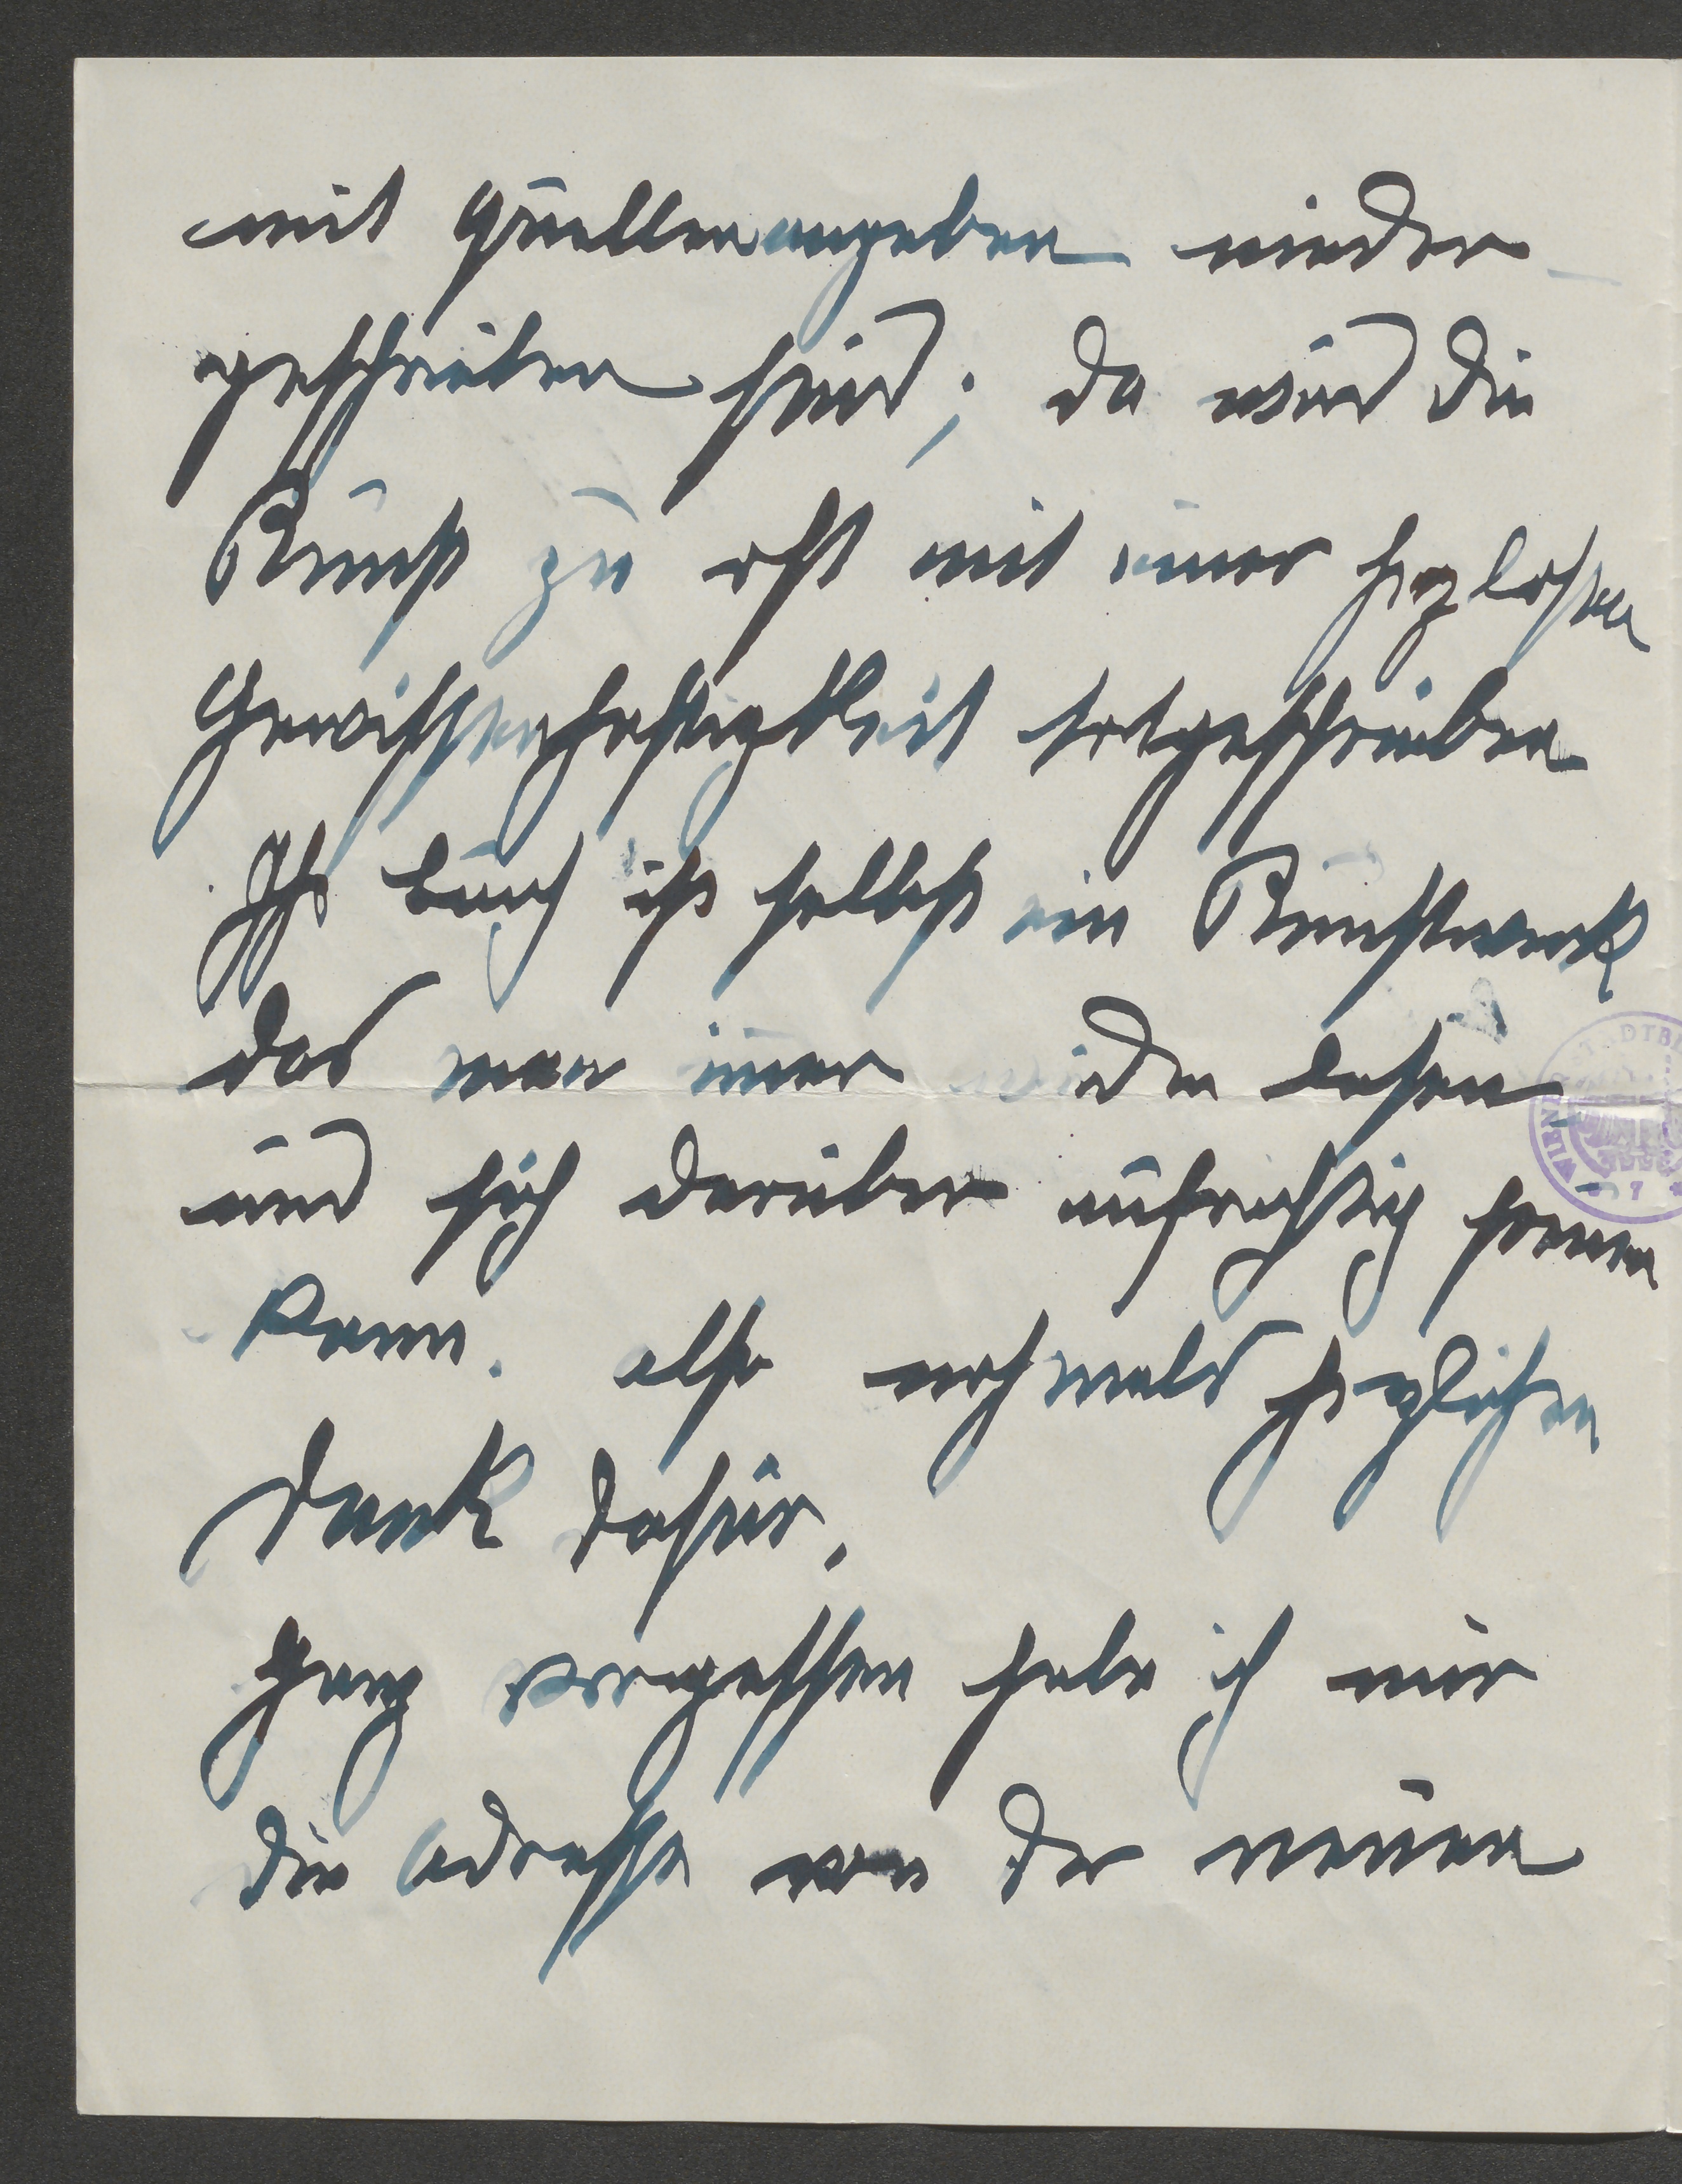 mit Quellenangaben nieder-
geschrieben sind; da wird die
Kunst zu oft mit einer herzlosen
Gewissenhaftigkeit totgeschrieben
Ihr Buch ist selbst ein Kunstwerk
das man im̄er wieder lesen
und sich darüber aufrichtig freuen
kann. also nochmals herzlichen
Dank dafür.
Ganz vergessen habe ich mir
die Adresse von der neuen